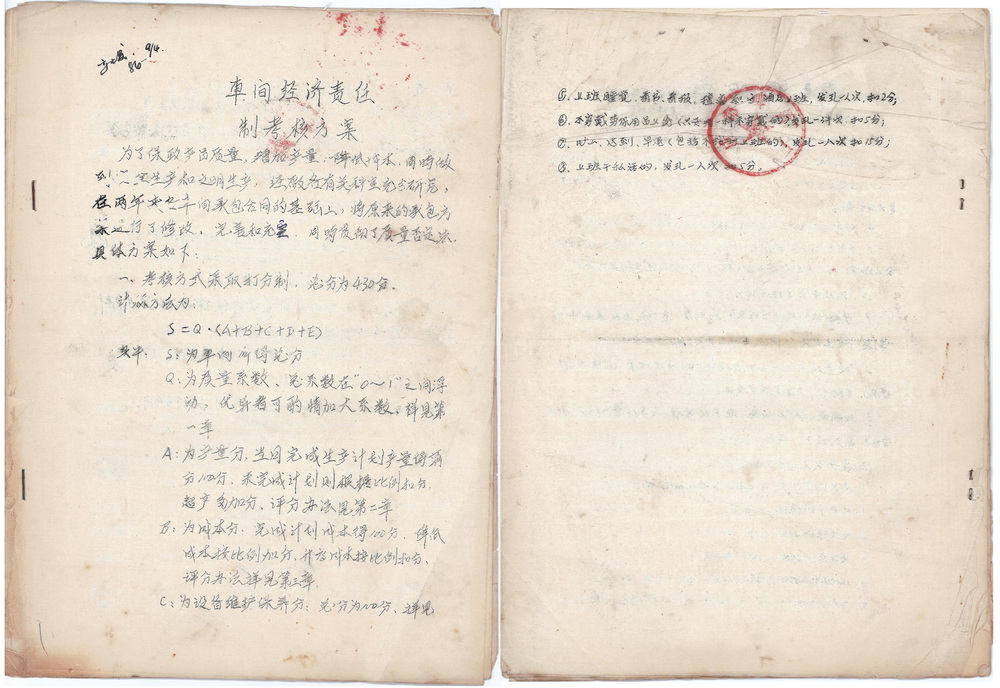 9/4.
86
車间经济责任
制考核方案
为了保政产品质量，增加产量，降低成本，同时做
到安全生产和文明生产，经厂有关科室充分研究，
在两年来车间承包合同的基础上，将原来的承包方
案进行了修改、完善和充实，同时贯彻了质量否定法，
具体方案如下：
一、考核方式采取打分制，总分为430分。
计算方法为：
S=Q·(A+B+C+D+E)
其中：S：为车间所得总分
Q：为质量系数、总系数在"0～1"之间浮
动，优异者可酌情加大系数，详见第
一章
A：为产量分，当月完成生产计划产量得满
分100分，未完成计划则根据比例扣分，
超产可加分、评分办法见第二章
B：为成本分，完成计划成本得100分，降低
成本按比例加分，升高成本按比例扣分、
评分办法详见第三章
C：为设备维护保养分：总分为100分、详见
⑤、上班睡觉、看书、看报、擅离职守、酒后上班，发现一人次，扣2分；
⑥、不穿戴劳保用品上岗（只要有一种不穿戴的）发现一人次扣5分；
⑦、旷工、迟到、早退（包括不按时上班的）、发现一人次扣15分；
⑧、上班干私活的，发现一人次扣5分；